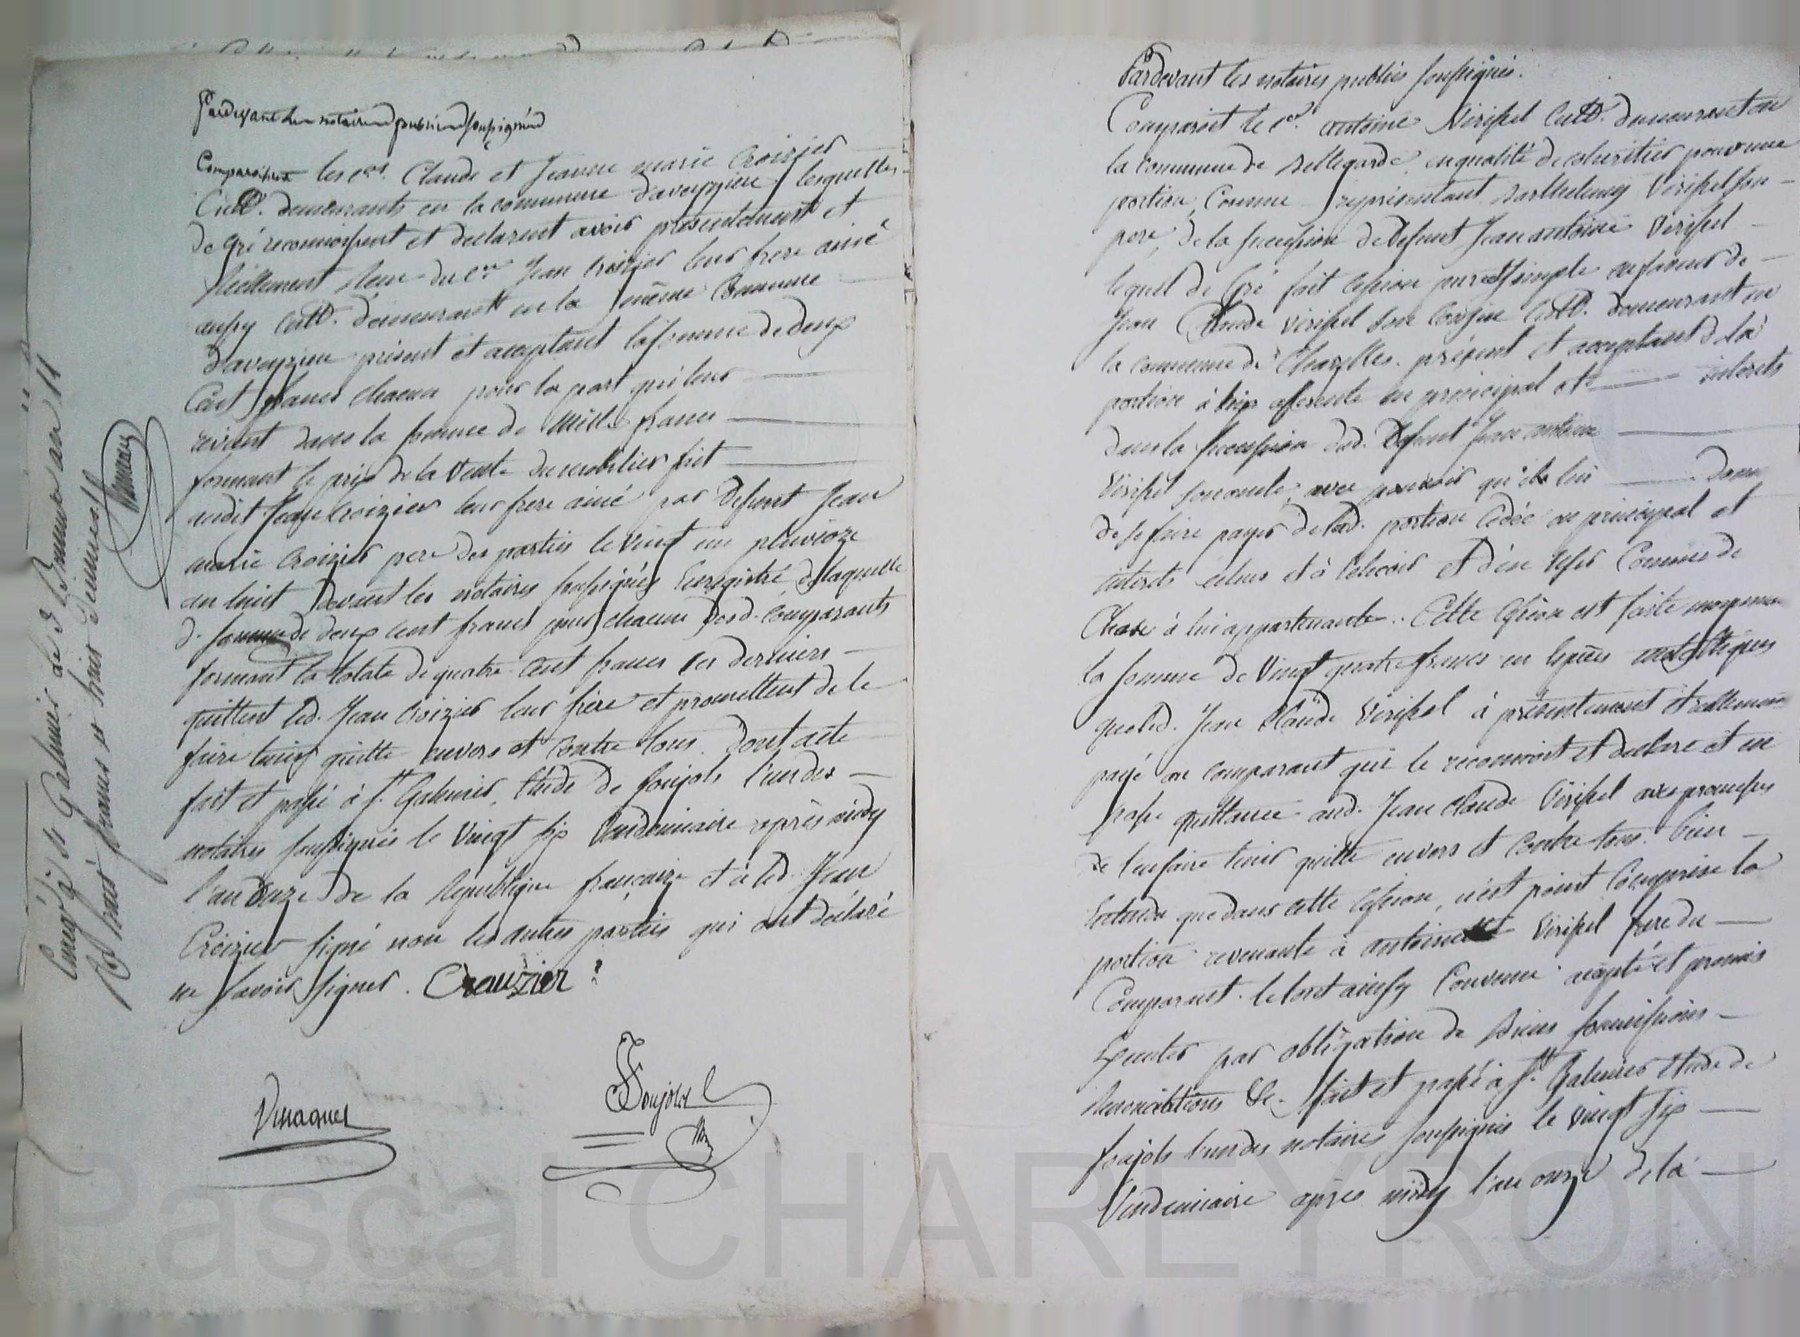 Pardevant les notaires publics soussignés
Comparoissent les cens. Claude et Jeanne marie Croizier
Cultt. demeurants en la commune d'aveyzieu, lesquelles
de gré reconnoissent et declarent avoir présentement et
Réellement Reçu du cen. Jean Croizier leur frere ainé
aussy Cultt. demeurant en la même Commune
d'aveyzieu présent et acceptant la somme de deux
Cent francs chacun pour la part qui leur
revient dans la somme de Mille francs
formant le prix de la Vente du mobilier fait
audit Jean Croizier leur frere ainé par Defunt Jean
marie Croizier pere des parties le vingt un pluvioze
an huit devant les notaires soussignés Enregistré de laquelle
d. somme de deux cent francs pour chacun desd. comparants
formant la totale de quatre cent francs ces derniers
quittent led. Jean Croizier leur frère et promettent de le
faire tenir quitte envers et Contre tous. Dont acte
fait et passé à St. Galmier, Etude de Soujols l'un des
notaires soussignés le Vingt six Vendemiaire après midy
l'an Onze de la République française et a led. Jean
Croizier signé non les autres parties qui ont déclaré
ne savoir signer. Crauzier
Soujols
Enregé. à St Galmier le 3 Brumaire an 11
Pardevant les notaires publics soussignés.
Comparoit le cen. antoine Viripel Cultt. demeurant en
la commune de Bellegarde, en qualité de cohéritier pour une
portion, Comme représentant Barthelemy Viripel son
pere, de la succession de Defunt Jean antoine Viripel
lequel de Gré fait Cession pure et simple en faveur de
Jean Claude Viripel son Cousin Cultt. demeurant en
la commune de Chazelles. présent et acceptant de la
portion à luy aferente en principal et intérêts
dans la succession dud. Defunt Jean antoine
Viripel son oncle, avec pouvoir qu'il lui Donne
de se faire payer de lad. portion Cédée en principal et
interets echus et à echeoir et d'en user Comme de
Chose à lui appartenante.. Cette Cession est faite moyennant
la somme de Vingt quatre francs en especes metalliques
que led. Jean Claude Viripel à présentement et reellement
payé au comparant qui le reconnoit et declare et en
passe quittance aud. Jean Claude Viripel avec promesses
de l'en faire tenir quitte envers et Contre tous. Bien
Entendu que dans cette Cession, n'est point Comprise la
portion revenante à antoinette Viripel sœur du
Comparant. le tout ainsy Convenu accepté et promis
Exécuter par obligation de Biens soumissions
Renonciations &c. fait et passé à St. Galmier Etude de
Soujols l'un des notaires soussignés le Vingt six
Vendemiaire après midy l'an onze de la
Pascal CHAREYRON